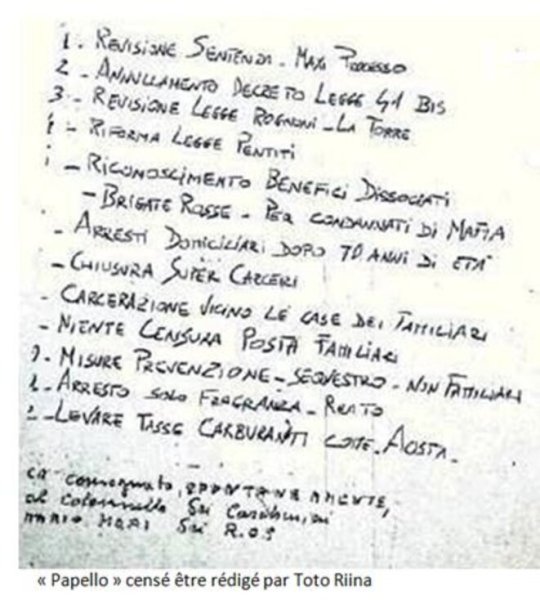 1 - REVISIONE SENTENZA - MAXI PROCESSO
2 - ANNULLAMENTO DECRETO LEGGE 41 BIS
3 - REVISIONE LEGGE ROGNONI - LA TORRE
- RIFORMA LEGGE PENTITI
- RICONOSCIMENTO BENEFICI DISSOCIATI
- BRIGATE ROSSE - PER CONDANNATI DI MAFIA
- ARRESTI DOMICILIARI DOPO 70 ANNI DI ETA'
- CHIUSURA SUPER CARCERI
- CARCERAZIONE VICINO LE CASE DEI FAMILIARI
- NIENTE CENSURA POSTA FAMILIARI
- MISURE PREVENZIONE - SEQUESTRO - NON FAMILIARI
- ARRESTO SOLO FRAGRANZA - REATO
- LEVARE TASSE CARBURANTI COME AOSTA -
consegnato, SPONTANEAMENTE,
al colonnello Dei Carabinieri
MARIO MORI Dei R.OS
« Papello » censé être rédigé par Toto Riina